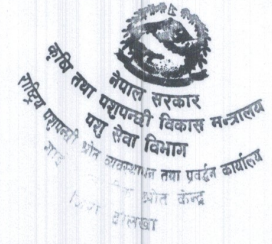 नेपाल सरकार
कृषि तथा पशुपन्छी विकास मन्त्रालय
पशु सेवा विभाग
राष्ट्रिय पशुपन्छी श्रोत व्यवस्थापन तथा प्रवर्द्धन कार्यालय
श्रोत केन्द्र